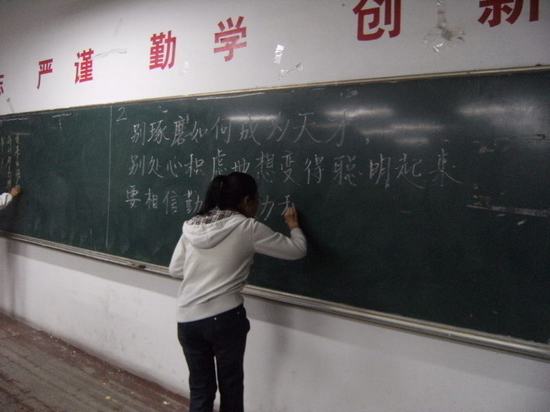 严谨 勤学 创新
2
别琢磨如何成为天才,
别处心积虑地想变得聪明起来
要相信勤 力